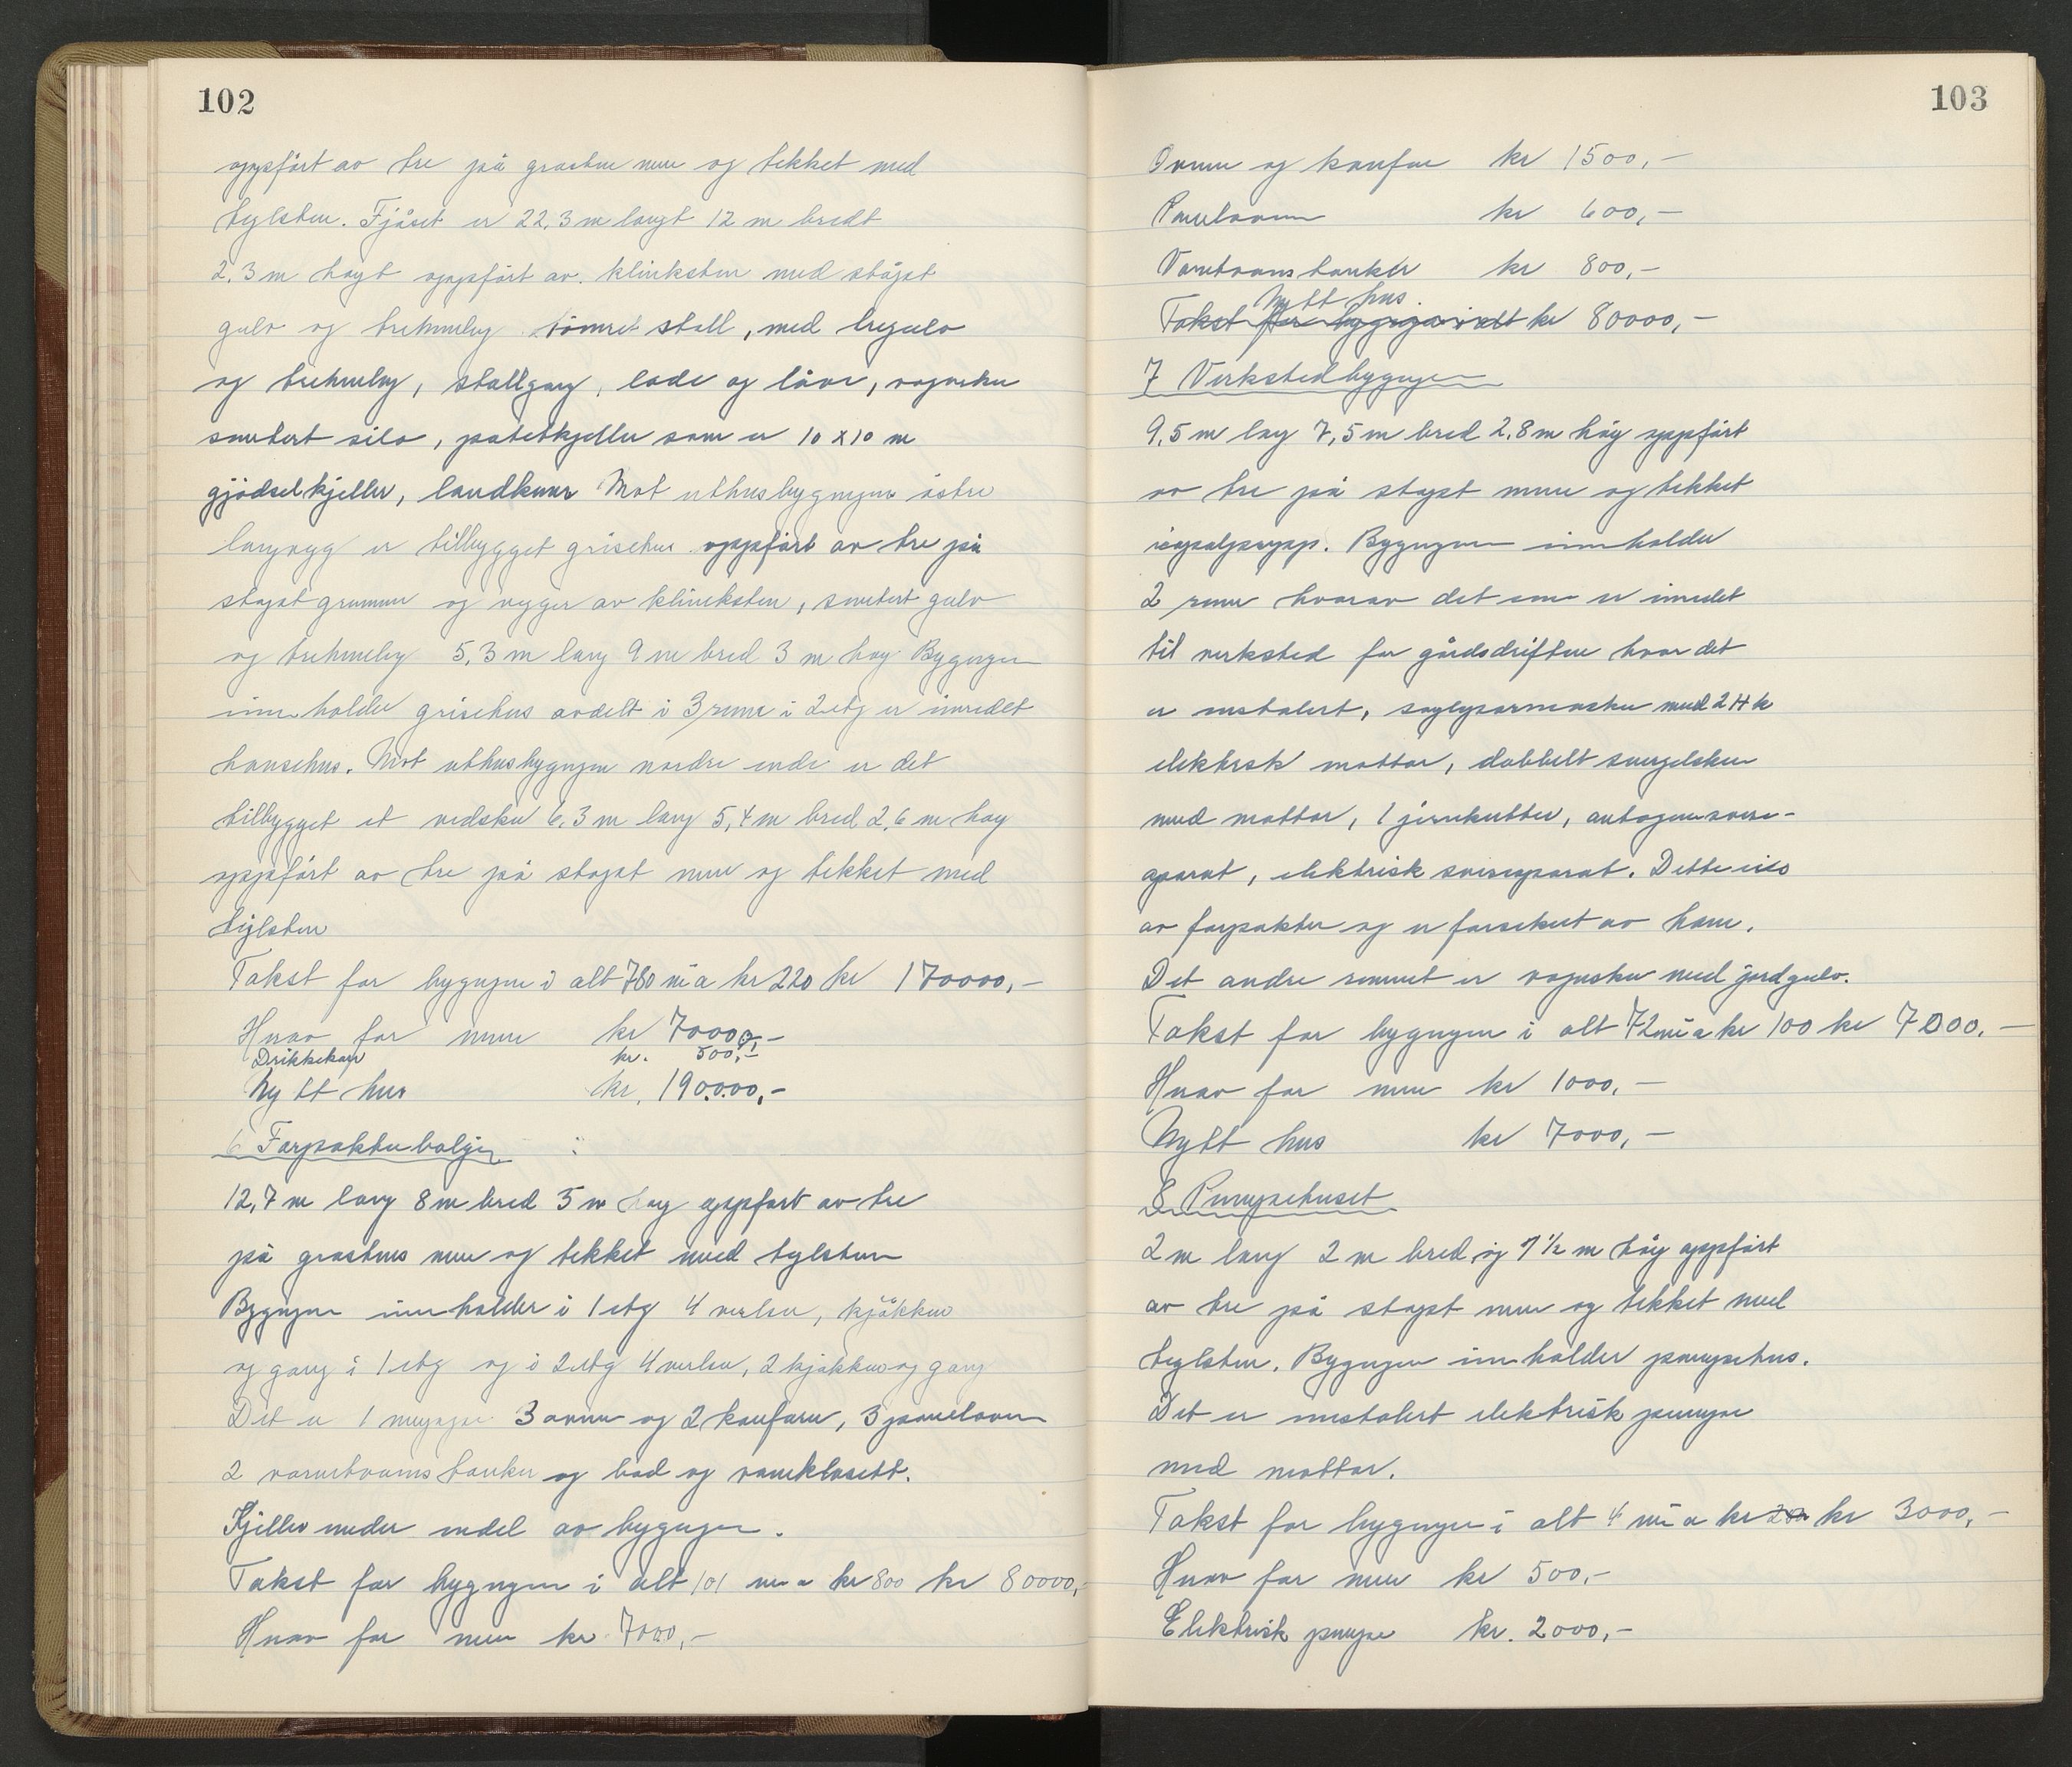 102
oppført av tre på grasten mur og tekket med
teglsten. Fjøset er 22,3 m langt 12 m bredt
2,3 m høgt oppført av klinksten med støpt
gulv og trehimling tømret stall, med tregulv
og trehimling, stallgang, lade og låve, vognsku
sementert silo, potetkjeller som er 10 x 10 m
gjødselkjeller, landkum Mot uthusbygningen østre
langvegg er tilbygget grisehus oppført av tre på
støpt grunnmur og vegger av klinksten, sementert gulv
og trehimling 5,3 m lang 9 m bred 3 m høg Bygningen
inneholder grisehus avdelt i 3 rum i 2 etg er innredet
hønsehus. Mot uthusbygningen nordre ende er det
tilbygget et vedsku 6,3 m lang 5,4 m bred 2,6 m høg
oppført av tre på støpt mur og tekket med
teglsten
Takst for bygningen i alt 780 m² a kr 220 kr 170000,-
Herav for mur kr 70000,-
Drikkekar kr. 500,-
Nytt hus kr. 190000,-
6 Forpakterboligen
12,7 m lang 8 m bred 5 m høg oppført av tre
på grastens mur og tekket med teglsten
Bygningen inneholder i 1 etg 4 verlser, kjøkken
og gang i 1 etg og i 2 etg 4 verlser, 2 kjøkken og gang
Det er 1 murpipe 3 ovner og 2 komfyrer, 3 panelovner
2 varmtvannstanker og bad og vannklosett.
Kjeller under endel av bygningen.
Takst for bygningen i alt 101 m² a kr 800 kr 80000,-
Herav for mur kr 7000,-
103
Ovner og komfyr kr 1500,-
Panelovner kr 600,-
Varmtvannstanker kr 800,-
Nytt hus.
Takst for bygningen i alt kr 80000,-
7 Verkstedbygningen
9,5 m lang 7,5 m bred 2,8 m høg oppført
av tre på støpt mur og tekket
Bygningen inneholder
2 rum hvorav det ene er innredet
til verksted for gårdsdriften hvor det
er instalert, med 2 Hk
elektrisk mottor, dobbelt smergelskive
med mottor, 1 jernkutter, autogensveise-
aparat, elektrisk sveiseaparat. Dette eies
av forpakter og er forsikret av ham.
Det andre rommet er vognsku med jordgulv.
Takst for bygningen i alt 72 m² a kr 100 kr 7000,-
Herav for mur kr 1000,-
Nytt hus kr 7000,-
8 Pumpehuset
2 m lang 2 m bred og 1 ½ m høg oppført
av tre på støpt mur og tekket med
teglsten. Bygningen inneholder pumpehus.
Det er instalert elektrisk pumpe
med mottor.
Takst for bygningen i alt 4 m² a kr kr 3000,-
Herav for mur kr 500,-
Elektrisk pumpe kr. 2000,-